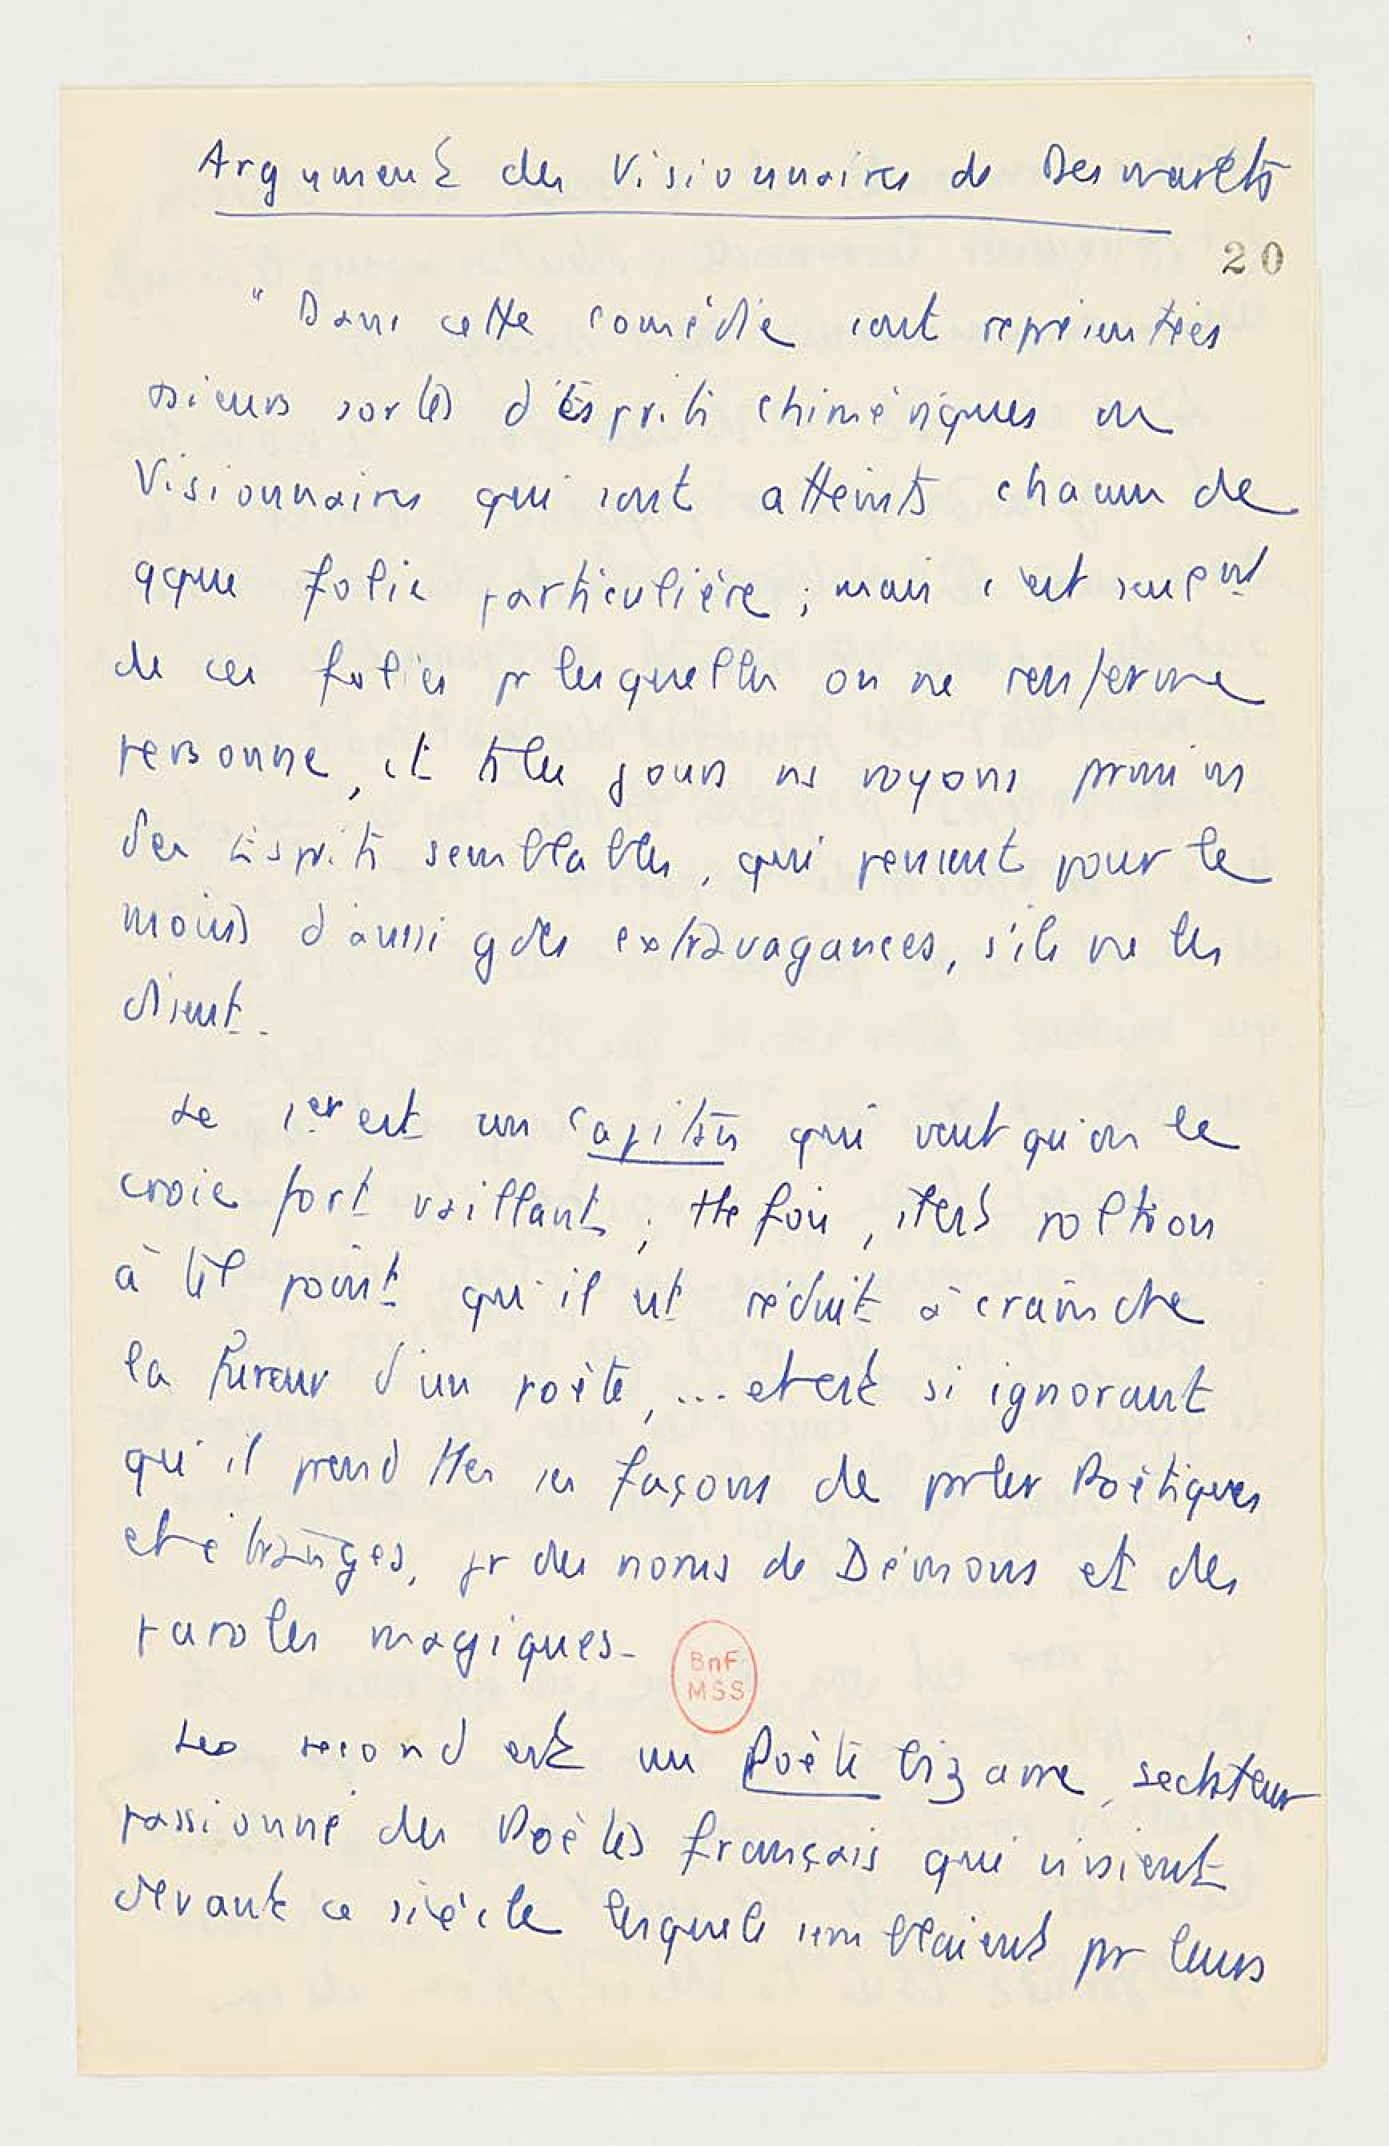 Argument des Visionnaires de Desmarets
20
" Dans cette comédie sont représentées
sieurs sortes d'Esprits chimériques ou
Visionnaires qui sont atteints chacun de
qque folie particulière ; mais c'est seult
de ces folies pr lesquelles on ne renferme
personne, et ts les jours ns voyons parmi ns
des Esprits semblables, qui pensent pour le
moins d'aussi gdes extravagances, s'ils ne les
disent.
Le 1er est un Capitan qui veut qu'on le
croie fort vaillant ; ttefois, il est poltron
à tel point qu'il est réduit à craindre
la fureur d'un poète, ... et est si ignorant
qu'il prend ttes ses façons de parler Poétiques
et étranges, pr des noms de Démons et des
paroles magiques.
BnF
MSS
Le second est un Poète bizarre, sectateur
passionné des Poètes français qui vivaient
devant ce siècle lesquels semblaient par leurs